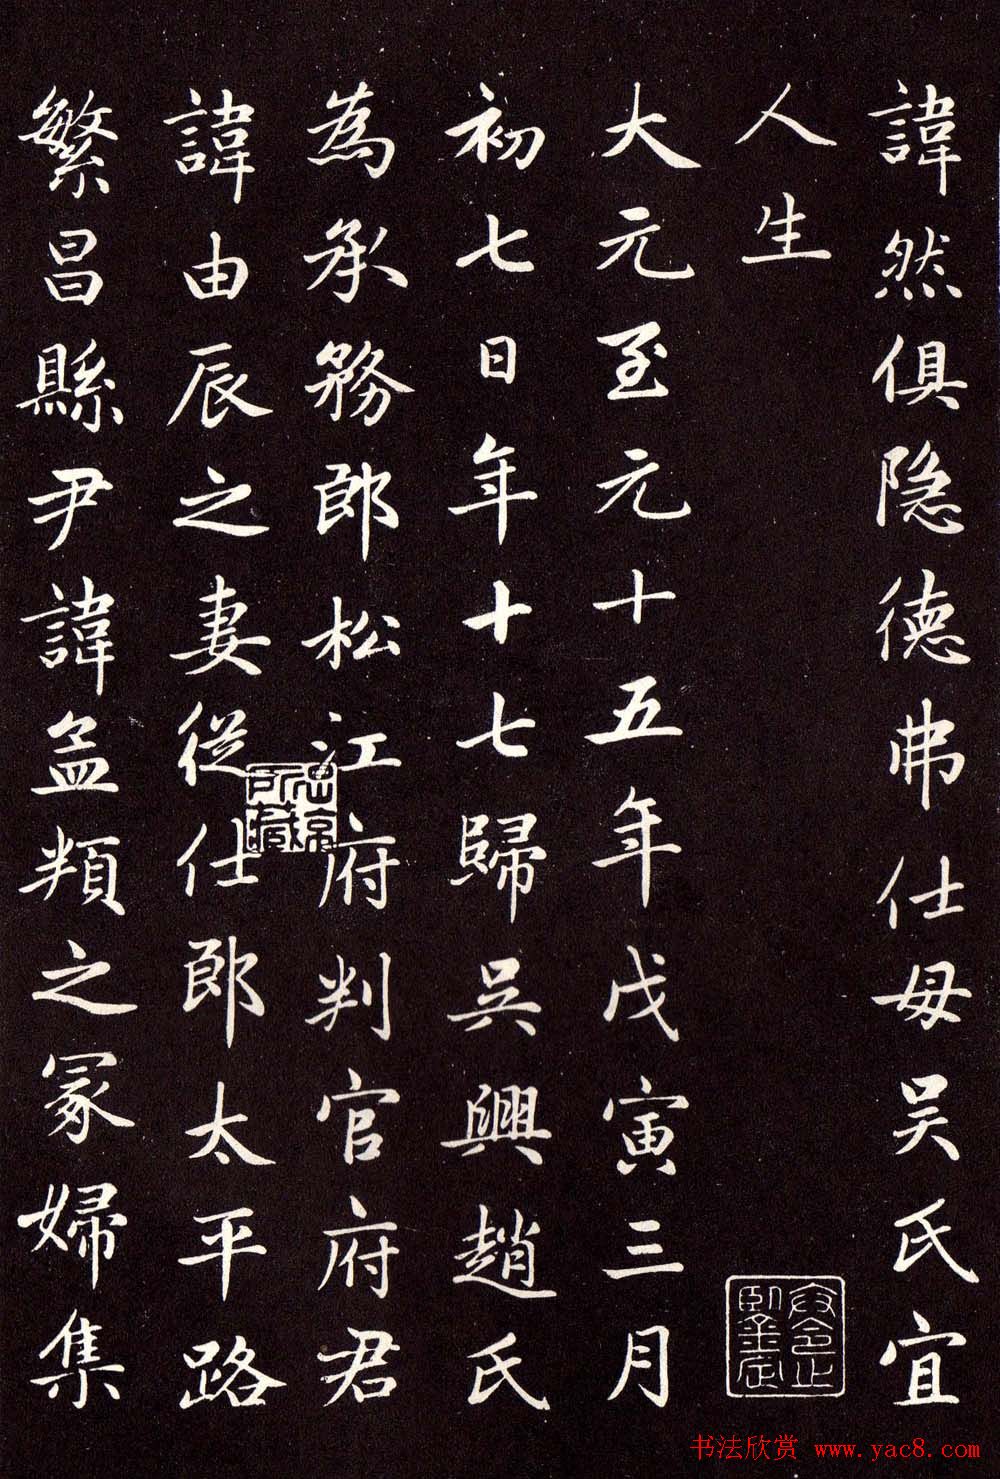 諱然俱隐德弗仕母吴氏宜
人生
大元至元十五年戊寅三月
初七日年十七歸吴興趙氏
為承務郎松江府判官府君
諱由辰之妻從仕郎太平路
繁昌縣尹諱孟頖之冢婦集
书法欣赏 www.yac8.com